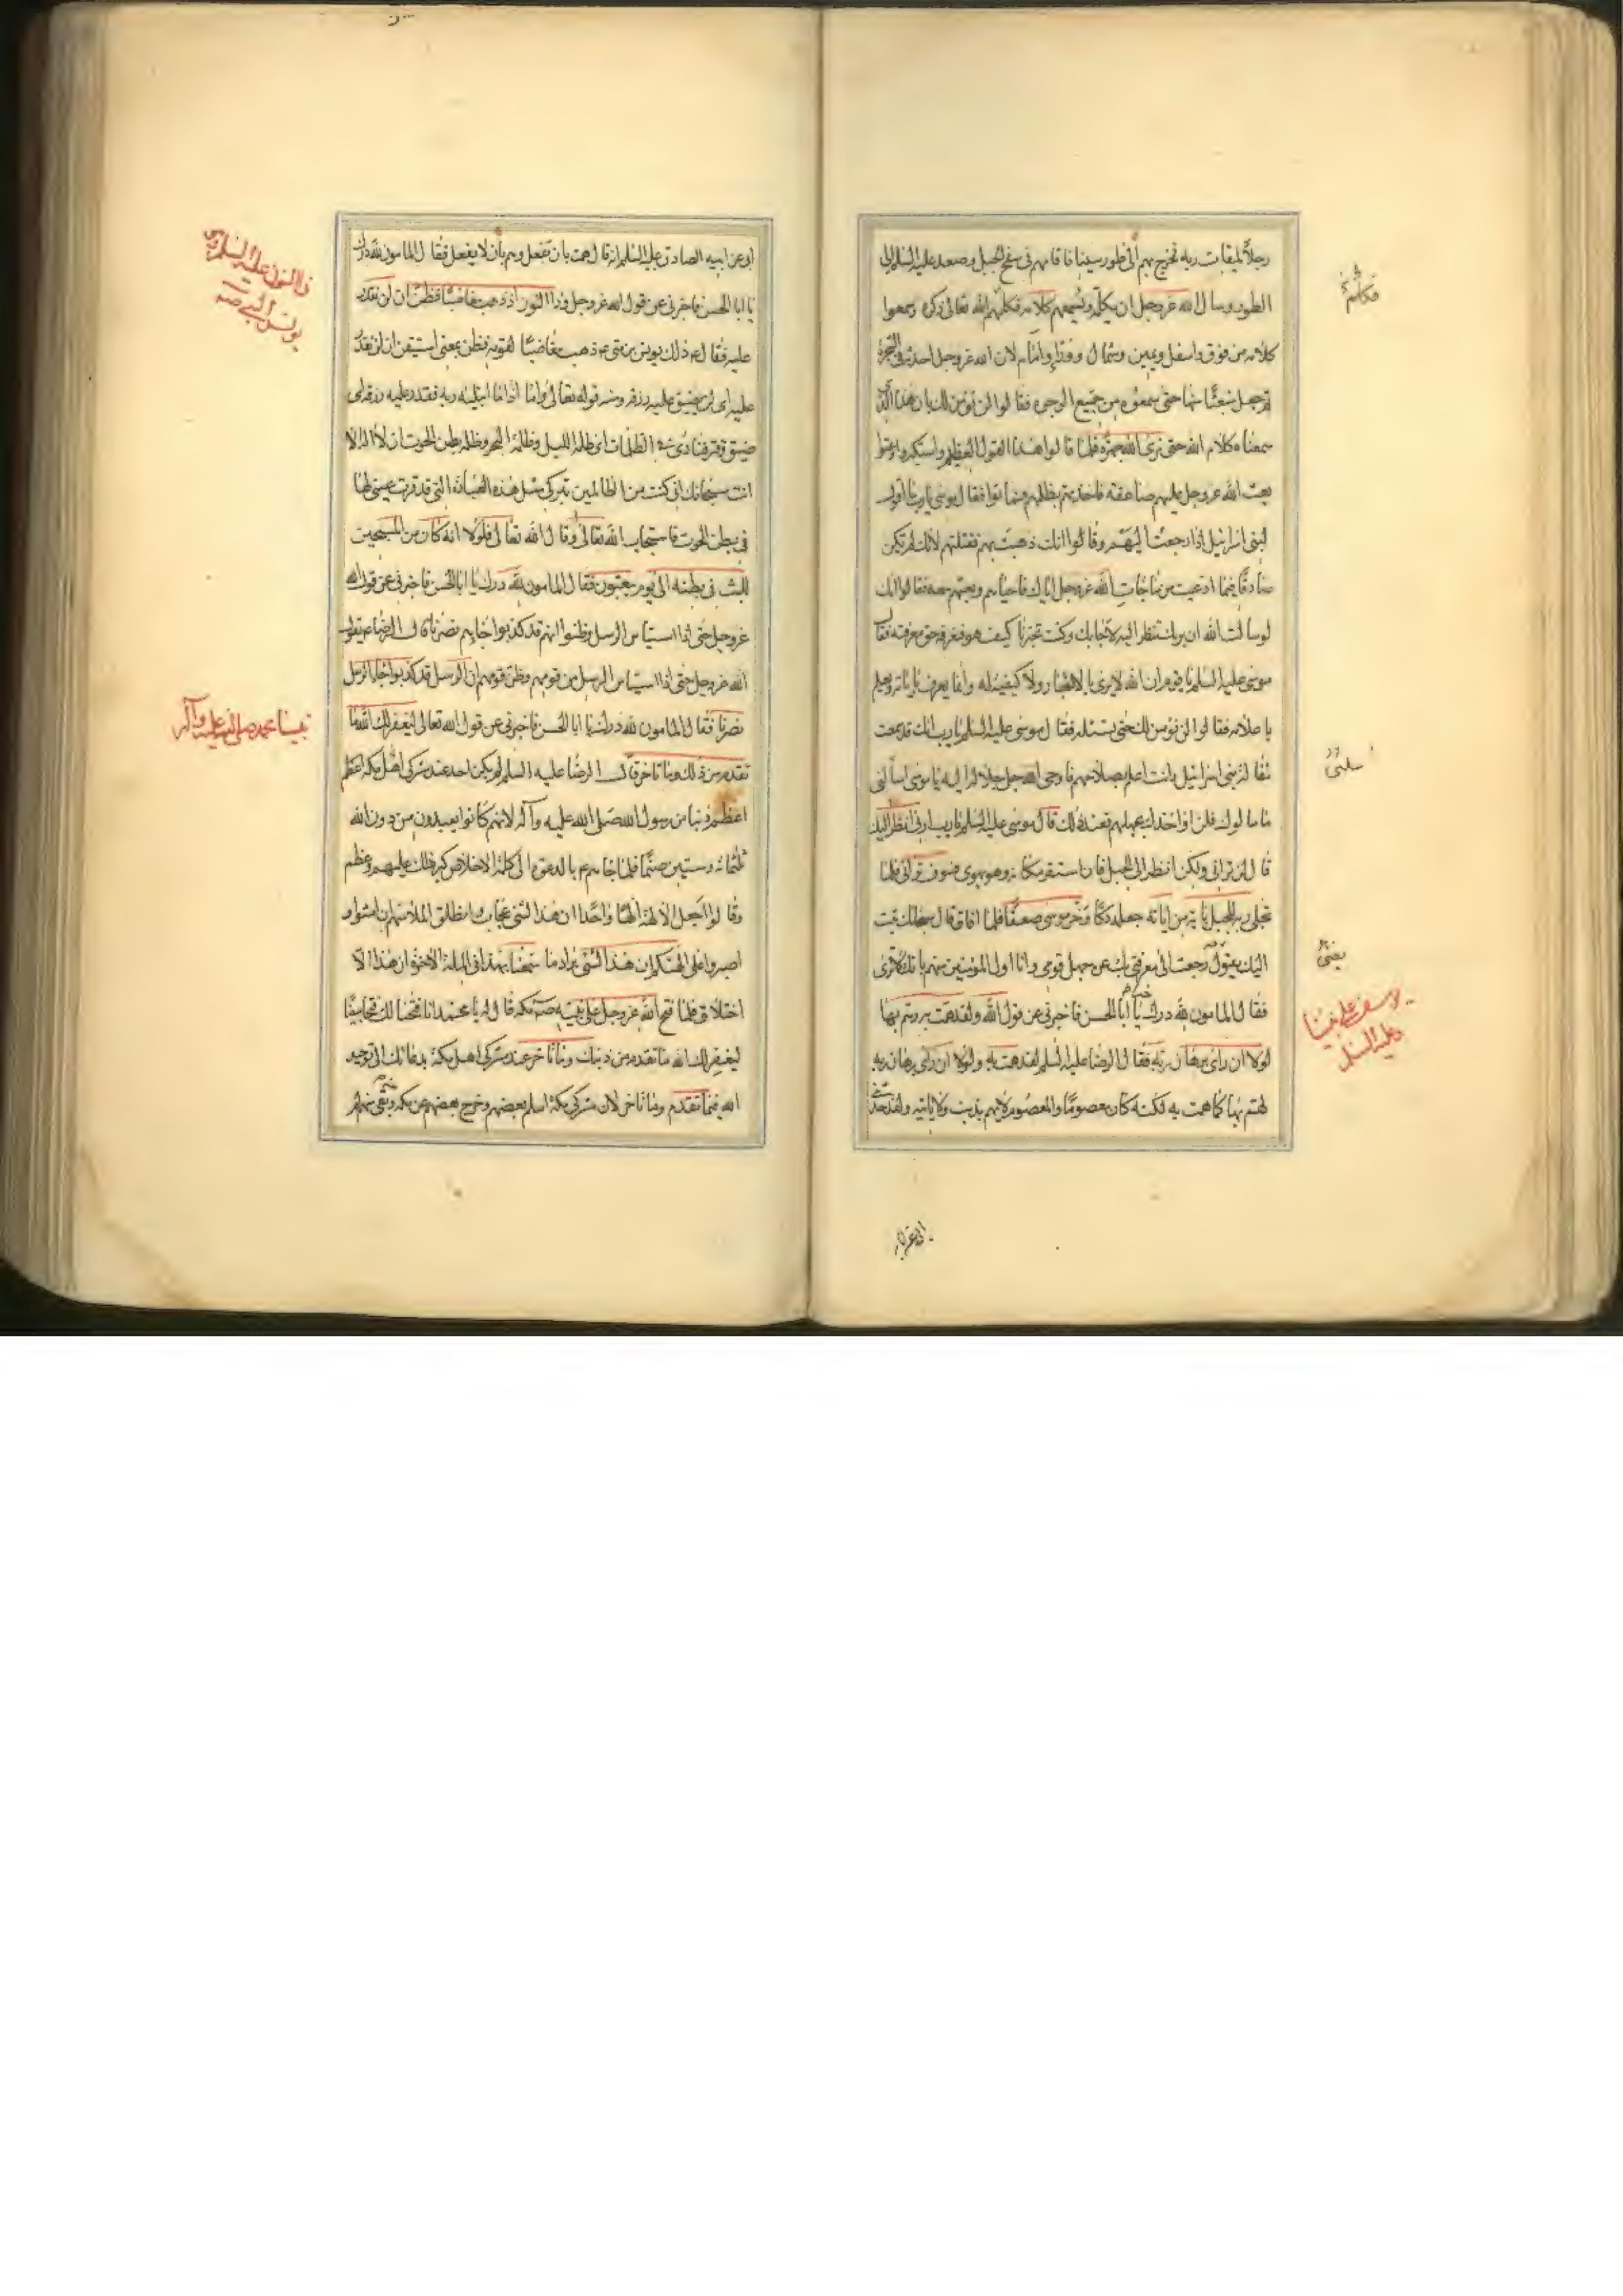 رجلاً لميقات ربه فخرج بهم الى طور سينا فاقامهم فى سفح الجبل وصعد عليه السلم الى
الطور وسال الله عز وجل ان يكلمه ويسمعهم كلامه فكلمهم الله تعالى ذكره وسمعوا
كلامه من فوق واسفل ويمين وشمال ووراء وامام لان الله عز وجل احدثه فى الشجرة
ثم جعل منبعثا منها حتى سمعوه من جميع الوجوه فقالوا لن نؤمن لك بان هذا الذى
سمعناه كلام الله حتى نرى الله جهرة فلما قالوا هذا القول العظيم واستكبروا وعتوا
بعث الله عز وجل عليهم صاعقة فاخذتهم بظلمهم فماتوا فقال موسى يا رب ما اقول
لبنى اسرائيل اذا رجعت اليهم وقالوا انك ذهبت بهم فقتلتهم لانك لم تكن
صادقا فيما ادعيت من مناجات الله عز وجل اياك فاحياهم وبعثهم معه فقالوا انك
لو سالت الله ان يريك تنظر اليه لاجابك وكنت تخبرنا كيف هو فنعرفه حق معرفته فقال
موسى عليه السلم يا قوم ان الله لا يرى بالابصار ولا كيفية له وانما يعرف باياته ويعلم
باعلامه فقالوا لن نؤمن لك حتى تسئله فقال موسى عليه السلم يا رب انك قد سمعت
مقالة بنى اسرائيل وانت اعلم بصلاحهم فاوحى الله جل جلاله اليه يا موسى اسالنى
ما سالوك فلن اواخذك بجهلهم فعند ذلك قال موسى عليه السلم يا رب ارنى انظر اليك
قال لن ترانى ولكن انظر الى الجبل فان استقر مكانه وهو يهوى فسوف ترانى فلما
تجلى ربه للجبل باية من اياته جعله دكا وخر موسى صعقا فلما افاق قال سبحانك تبت
اليك يقول رجعت الى معرفتى بك عن جهل قومى وانا اول المؤمنين منهم بانك لا ترى
فقال المامون لله درك يا ابا الحسن فاخبرنى عن قول الله ولقد همت به وهم بها
لولا ان راى برهان ربه فقال الرضا عليه السلم لقد همت به ولولا ان راى برهان ربه
لهم بها كما همت به لكنه كان معصوما والمعصوم لا يهم بذنب ولا ياتيه ولقد حدثنى
فكلمهم
سلنى
يعنى
يوسف على نبينا
وعليه السلم
ابى عن ابيه الصادق عليه السلم انه قال همت بان تفعل وهم بان لا يفعل فقال المامون لله درك
يا ابا الحسن فاخبرنى عن قول الله عز وجل وذا النون اذ ذهب مغاضبا فظن ان لن نقدر
عليه فقال ع ذلك يونس بن متى ع ذهب مغاضبا لقومه فظن بمعنى استيقن ان لن نقدر
عليه اى لن نضيق عليه رزقه ومنه قوله تعالى واما اذا ما ابتليه ربه فقدر عليه رزقه اى
ضيق وقتر فنادى فى الظلمات اى ظلمة الليل وظلمة البحر وظلمة بطن الحوت ان لا اله الا
انت سبحانك انى كنت من الظالمين بتركى مثل هذه العبادة التى قد قرت عينى لها
فى بطن الحوت فاستجاب الله تعالى وقال الله تعالى فلولا انه كان من المسبحين
للبث فى بطنه الى يوم يبعثون فقال المامون لله درك يا ابا الحسن فاخبرنى عن قول الله
عز وجل حتى اذا استياس الرسل وظنوا انهم قد كذبوا جاءهم نصرنا قال الرضا ع يقول
الله عز وجل حتى اذا استياس الرسل من قومهم وظن قومهم ان الرسل قد كذبوا جاء الرسل
نصرنا فقال المامون لله درك يا ابا الحسن فاخبرنى عن قول الله تعالى ليغفر لك الله ما
تقدم من ذنبك وما تاخر قال الرضا عليه السلم لم يكن احد عند مشركى اهل مكة اعظم
اعظم ذنبا من رسول الله صلى الله عليه وآله لانهم كانوا يعبدون من دون الله
ثلثمائة وستين صنما فلما جاءهم ع بالدعوة الى كلمة الاخلاص كبر ذلك عليهم وعظم
وقالوا اجعل الالهة الها واحدا ان هذا لشئ عجاب وانطلق الملا منهم ان امشوا و
اصبروا على الهتكم ان هذا لشئ يراد ما سمعنا بهذا فى الملة الاخرة ان هذا الا
اختلاق فلما فتح الله عز وجل على نبيه ص مكة قال له يا محمد انا فتحنا لك فتحا مبينا
ليغفر لك الله ما تقدم من ذنبك وما تاخر عند مشركى اهل مكة بدعائك الى توحيد
الله فيما تقدم وما تاخر لان مشركى مكة اسلم بعضهم وخرج بعضهم عن مكة وبقى منهم لم
ذا النون عليه السلم
نبينا محمد صلى الله عليه وآله
ابى عن ابيه